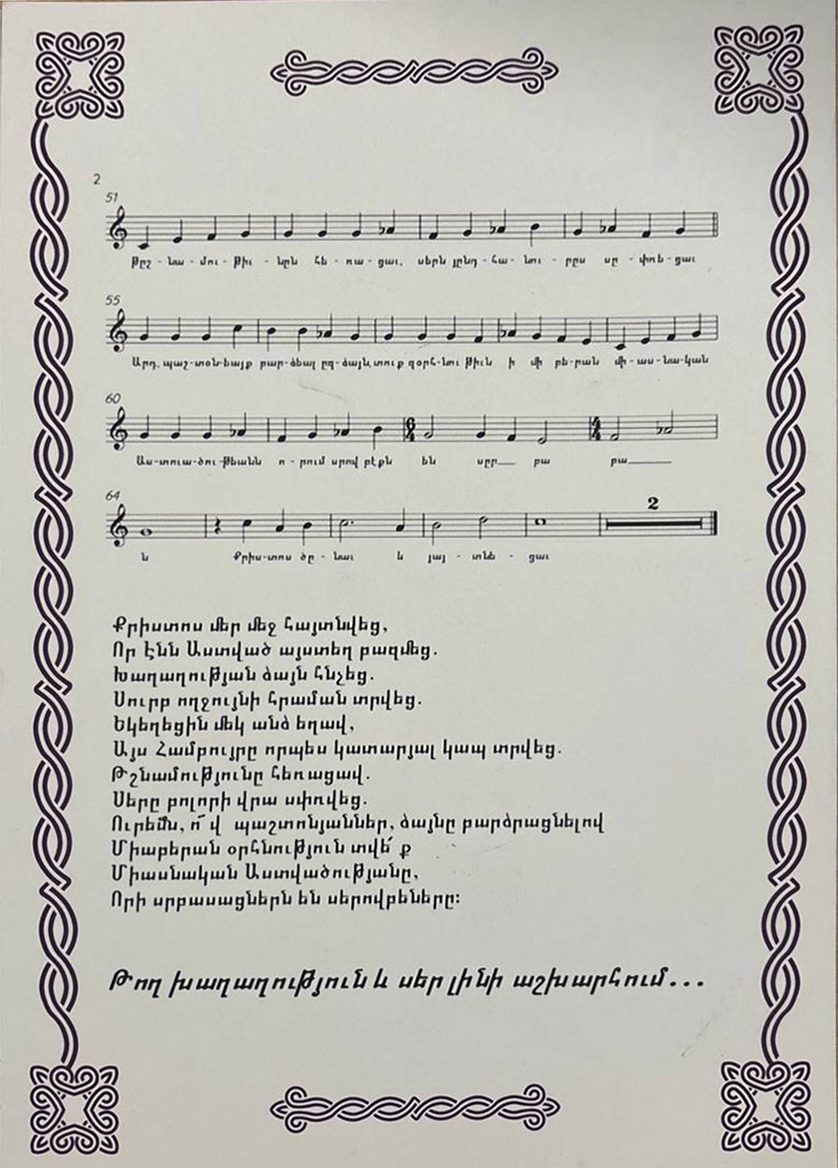 2
51
Թըշ - նա - մու - թիւ - նըն հե - ռա - ցաւ. սերն յընդ - հա - նու - րըս սը - փռե - ցաւ
55
Արդ, պաշ - տօն - եայք բար - ձեալ ըզ - ձայն, տուք զօրհ - նու թիւն ի մի բե - րան մի - աս - նա - կան
60
Աս - տուա - ծու - թեանն ո - րում սրով բէքն են սըր___ բա բա___
64
ն Քրիս - տոս ծը - նաւ և յայ - տնե - ցաւ
2
Քրիստոս մեր մեջ հայտնվեց,
Որ էնն Աստված այստեղ բազմեց.
Խաղաղության ձայն հնչեց.
Սուրբ ողջույնի հրաման տրվեց.
Եկեղեցին մեկ անձ եղավ,
Այս Համբույրը որպես կատարյալ կապ տրվեց.
Թշնամությունը հեռացավ.
Սերը բոլորի վրա սփռվեց.
Ուրեմն, ո՜վ պաշտոնյաններ, ձայնը բարձրացնելով
Միաբերան օրհնություն տվե՛ք
Միասնական Աստվածությանը,
Որի սրբասացներն են սերովբեները:
Թող խաղաղություն և սեր լինի աշխարհում...